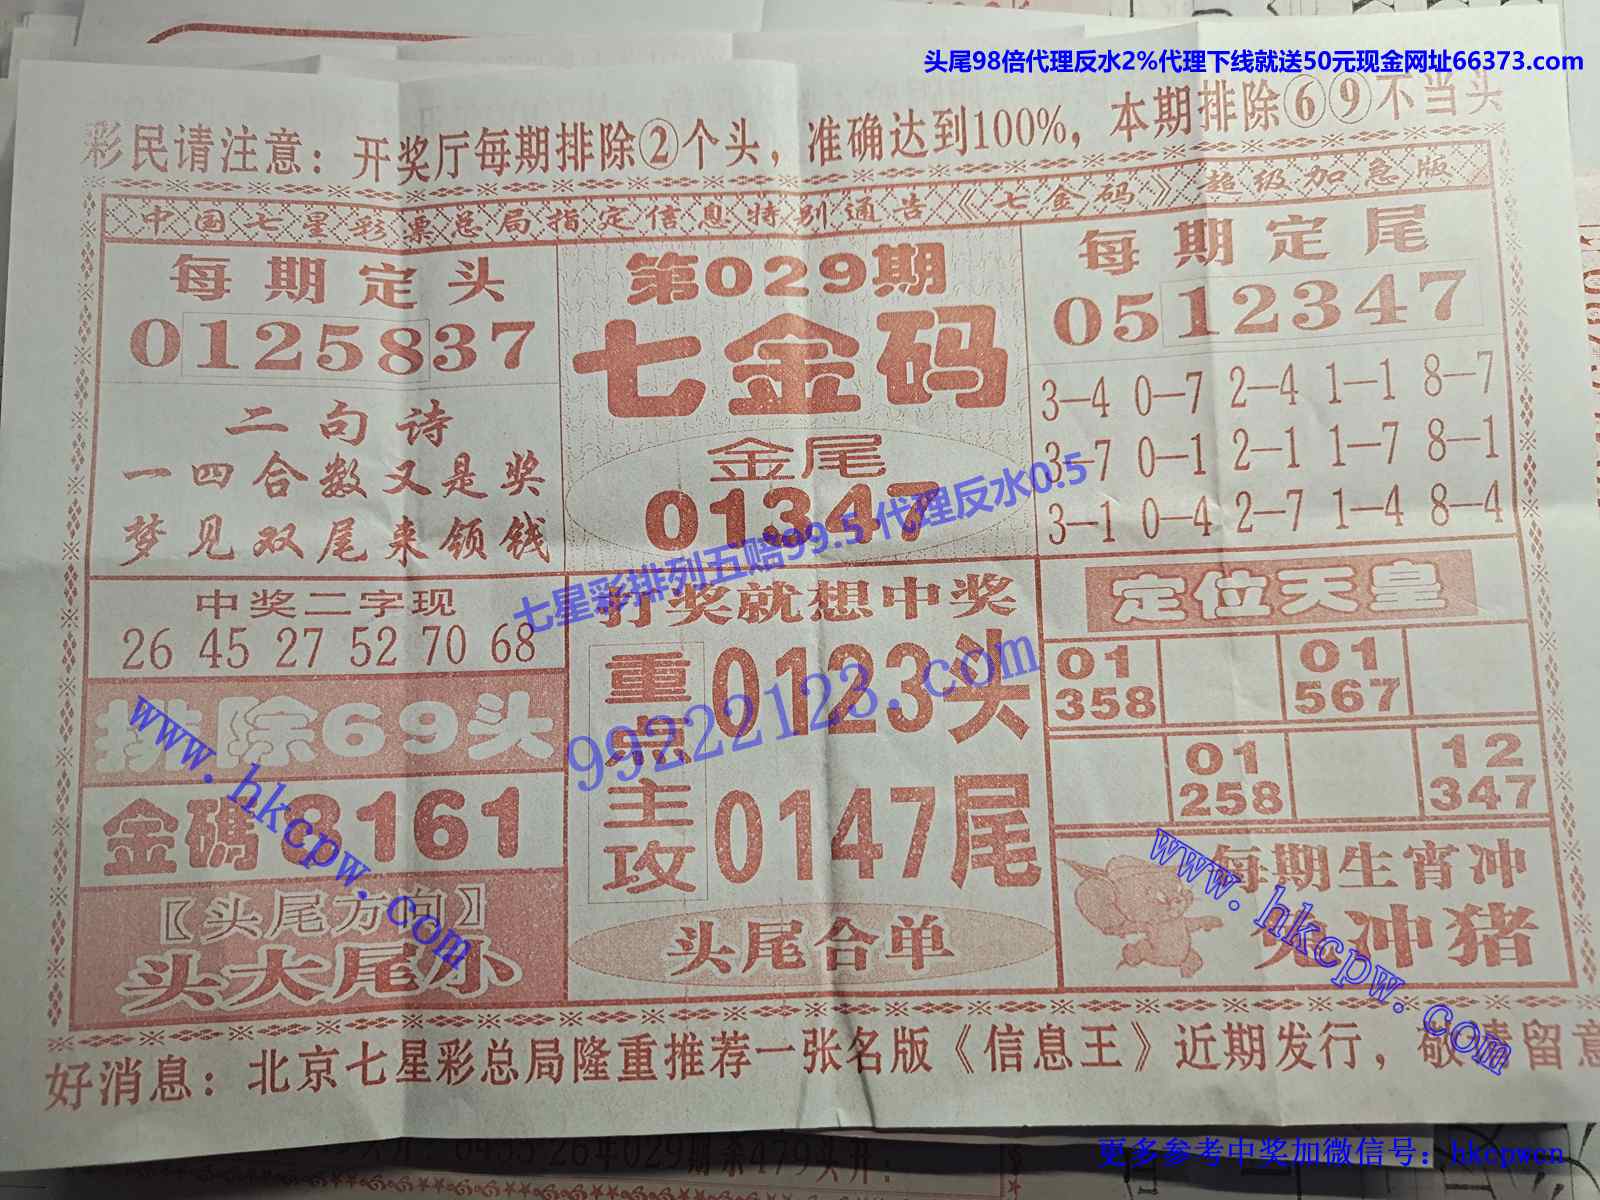 头尾98倍代理反水2%代理下线就送50元现金网址66373.com
彩民请注意：开奖厅每期排除②个头，准确达到100%，本期排除⑥⑨不当头
中国七星彩票总局指定信息特别通告《七金码》超级加急版
每期定头
0125837
二句诗
一四合数又是奖
梦见双尾来领钱
第029期
七金码
金尾
01347
每期定尾
0512347
3—4 0—7 2—4 1—1 8—7
3—7 0—1 2—1 1—7 8—1
3—1 0—4 2—7 1—4 8—4
七星彩排列五赔99.5 代理反水0.5
99222123.com
中奖二字现
26 45 27 52 70 68
排除69头
金碼 8161
【头尾方向】
头大尾小
打奖就想中奖
重点主攻
0123头
0147尾
头尾合单
定位天皇
01 01
358 567
01 12
258 347
每期生宵冲
兔冲猪
www.hkcpw.com
www.hkcpw.com
好消息：北京七星彩总局隆重推荐一张名版《信息王》近期发行，敬请留意
更多参考中奖加微信号：hkcpwcn